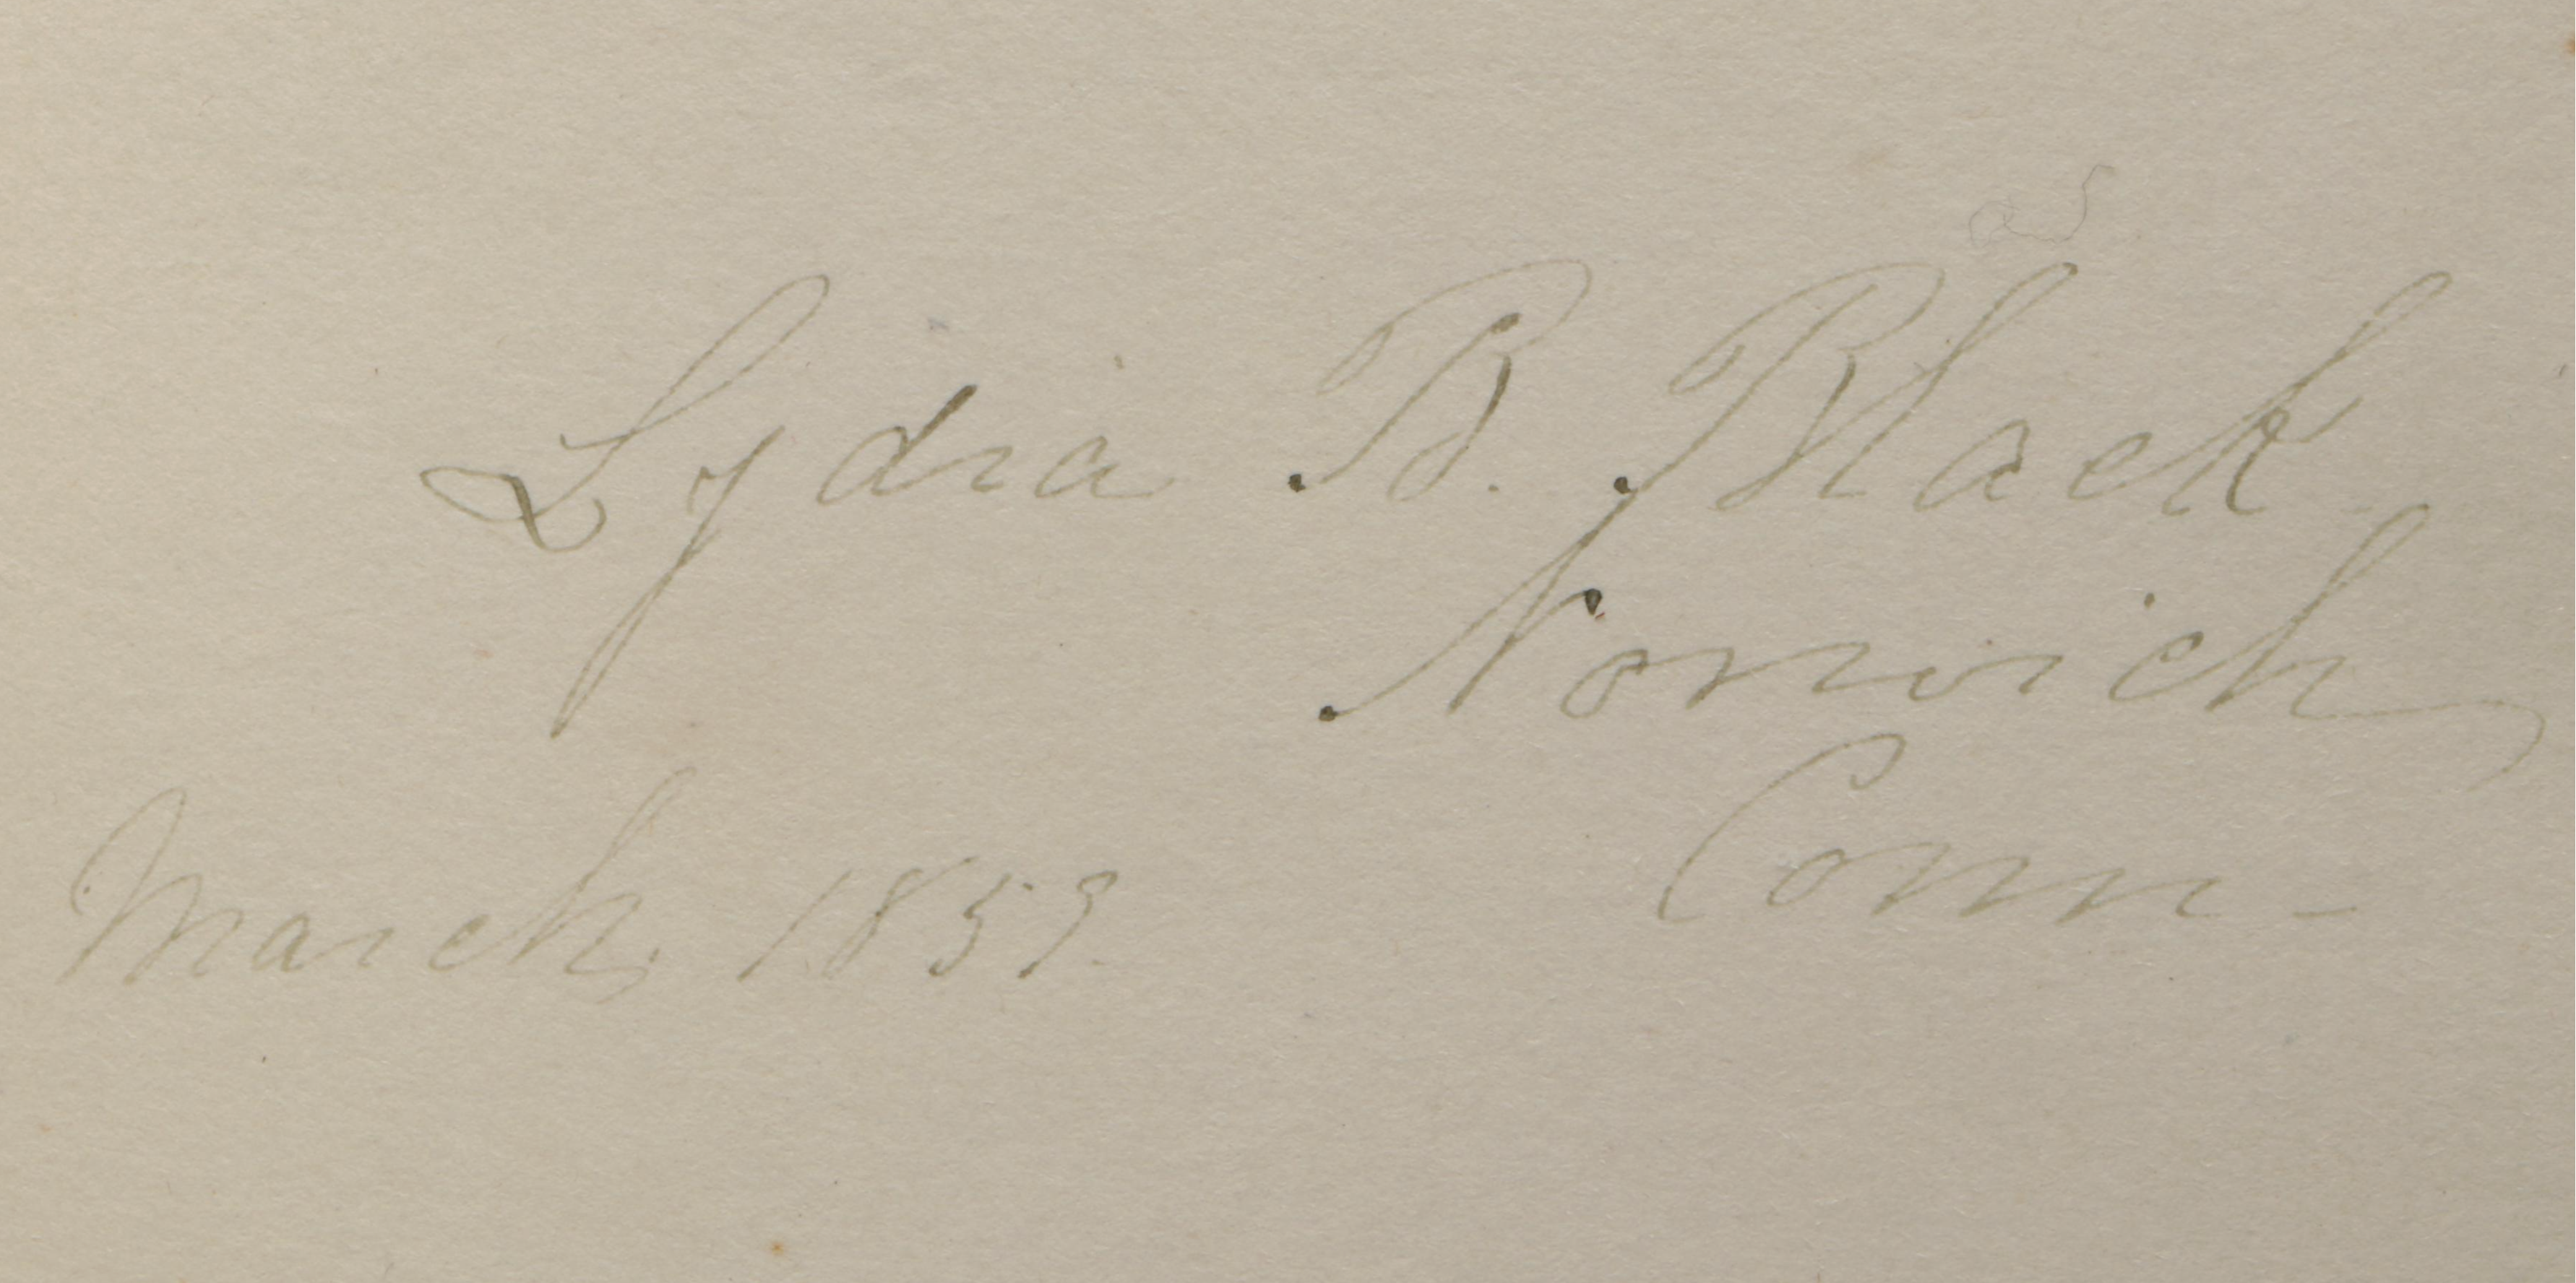 Lydia B. Black
Norwich
Conn-
March, 1859.